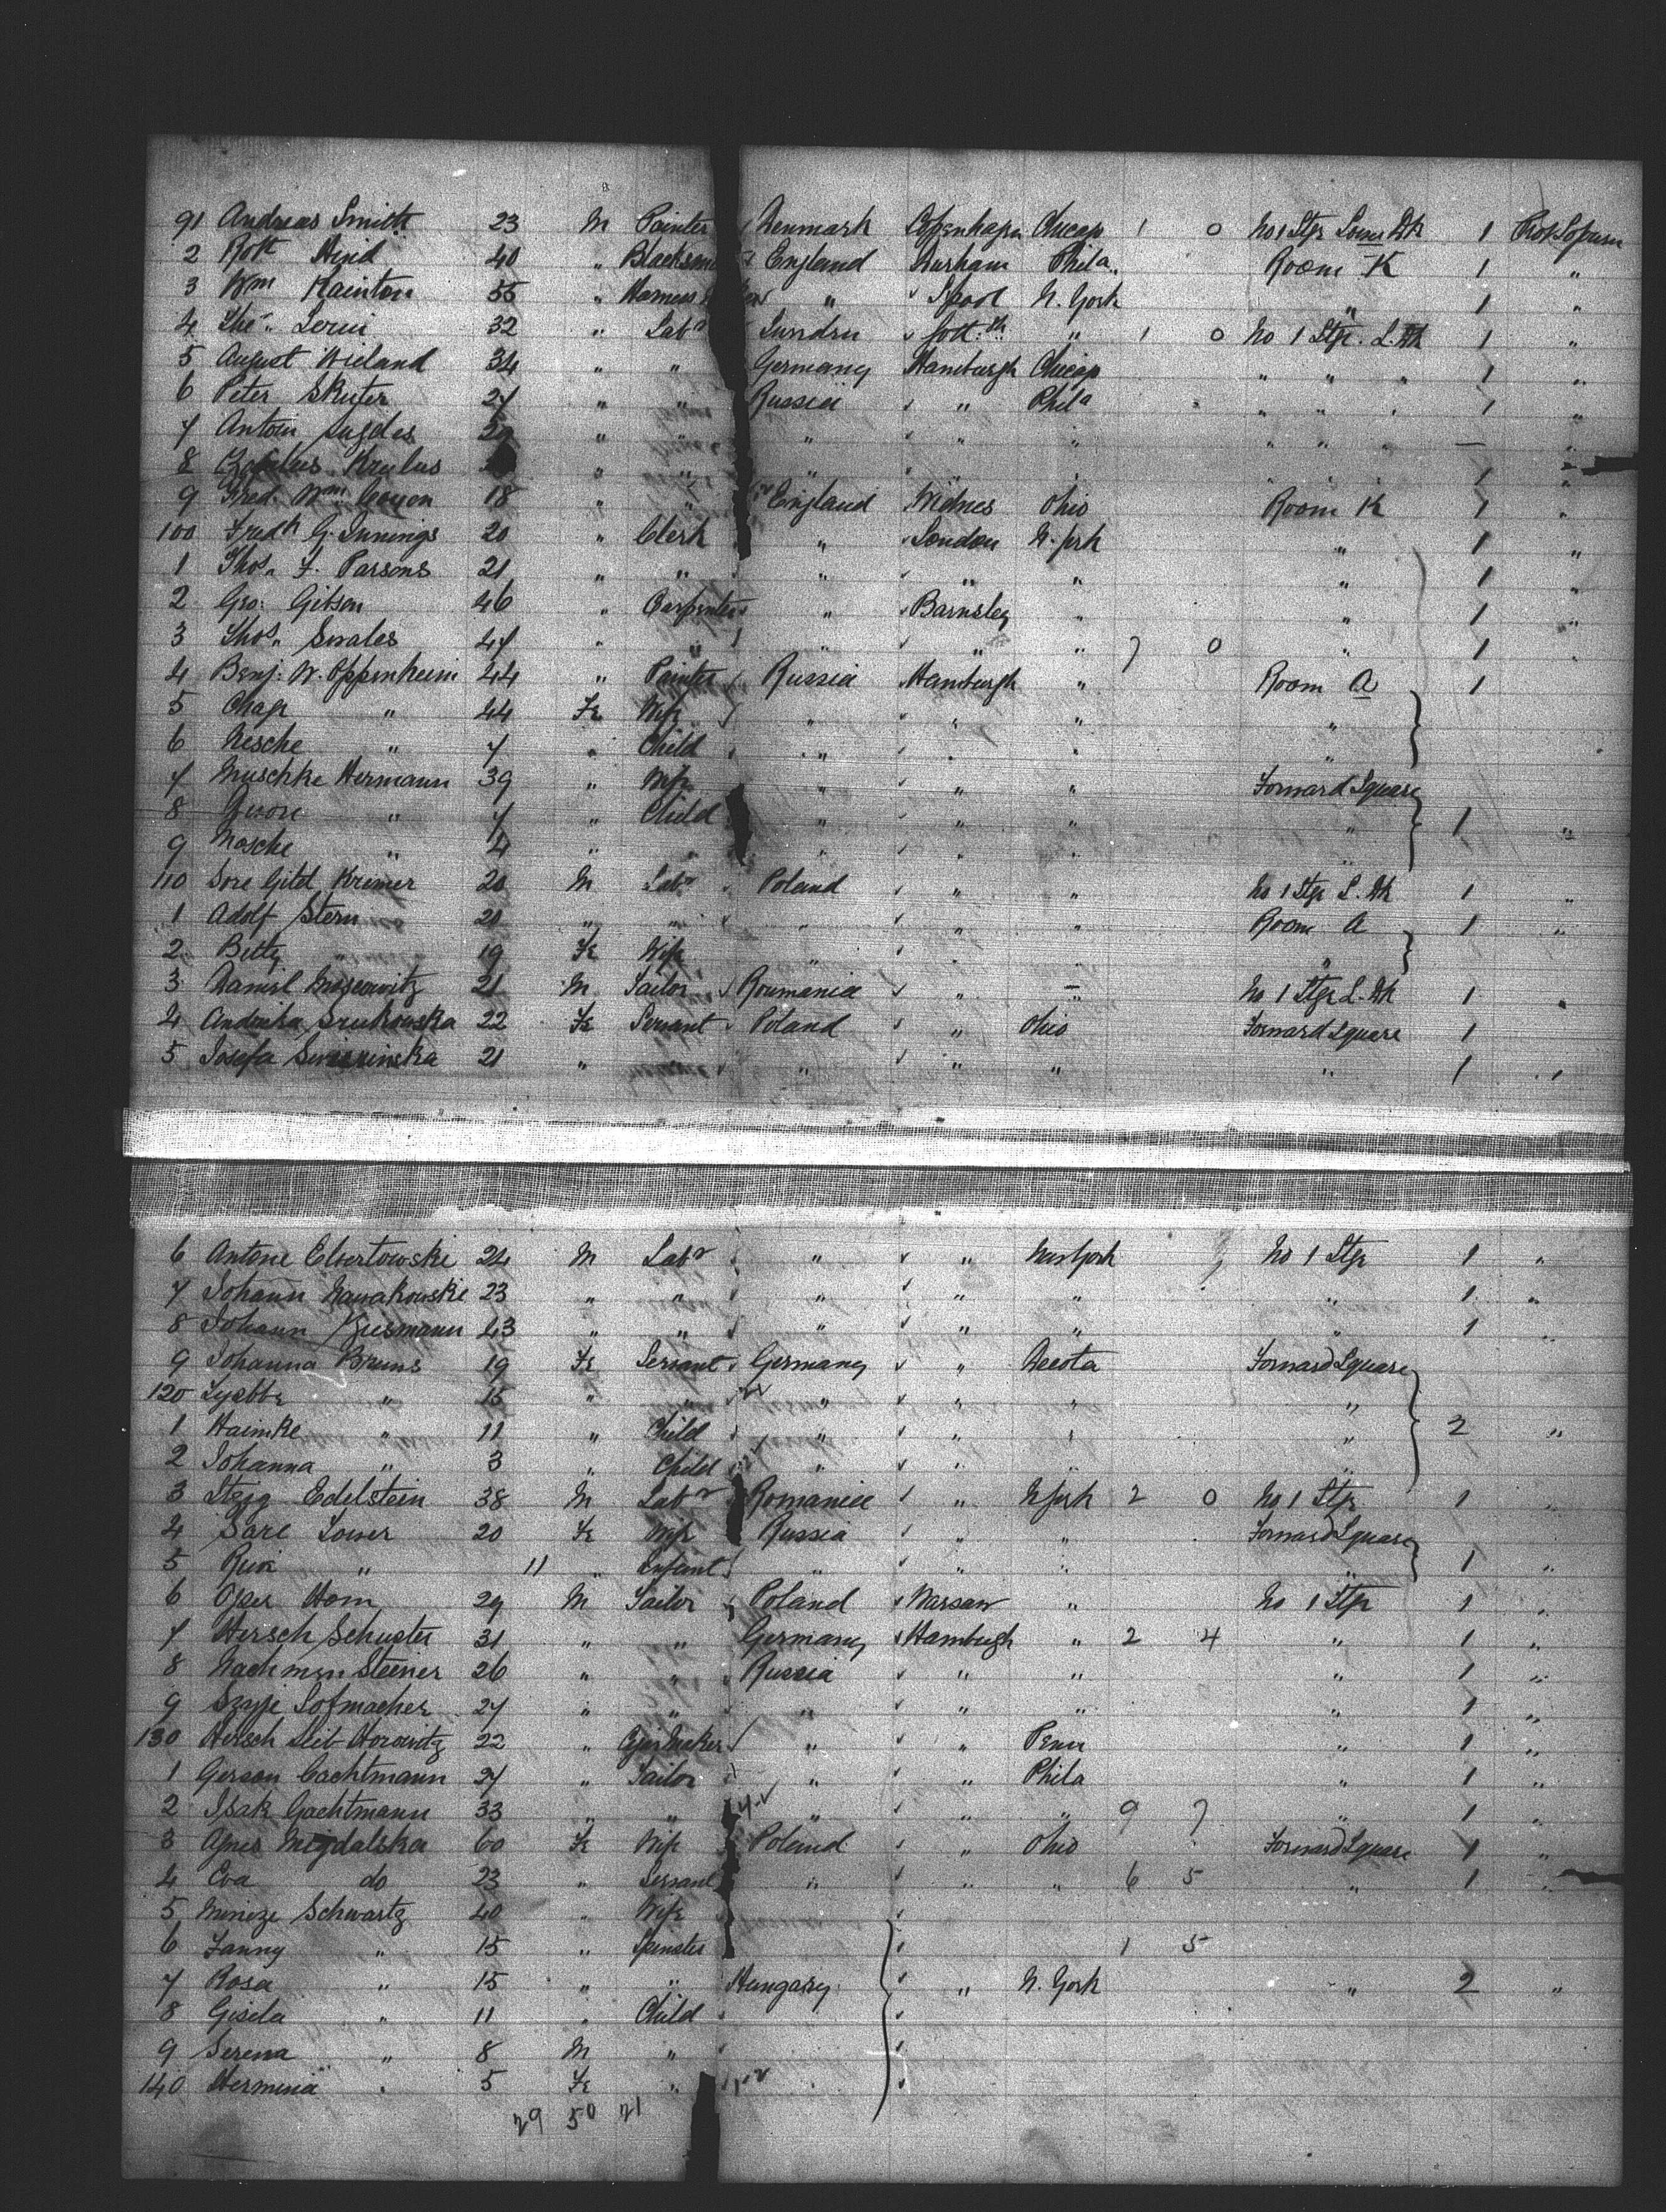 91 Andreas Smith 23 M Painter Denmark Copenhagen Chicago 1 0 No 1 Stge Lower Dk 1 Prot Sojourn
2 Robt Hind 40 " Blacksm England Durham Phila " Room K 1 "
3 Wm Rainton 55 " Harness " Lpool N. York " 1 "
4 32 " Labr Gott. " 1 0 No 1 Stge. L. Dk 1 "
5 August Wieland 34 " " Germany Hamburgh Chicago " " " 1 "
6 Peter Skuter 27 " " Russia " Phila " " " 1 "
7 Antoni " " " " " " " " — "
8 Krulus " " " " " 1 "
9 Fred. Wm 18 " " England Widnes Ohio Room K 1 "
100 Fredk G. Innings 20 " Clerk " London N. York " 1 "
1 Thos. F. Parsons 21 " " " " " " 1 "
2 Geo: Gibson 46 " Carpenter " Barnsley " " 1 "
3 Thos. Swales 47 " " " " " 7 0 " 1 "
4 Benj: W. Oppenheim 44 " Painter Russia Hamburgh " Room A 1
5 Chaje " 44 Fe Wife " " " "
6 Nesche " 7 " Child " " " "
7 Muschke Hermann 39 " Wife " " " Forward Square
8 " 7 " Child " " " " 1 "
9 Mosche " 4 " " " " " "
110 Sore Gitel Kremer 20 M Labr Poland " " No 1 Stge L. Dk 1 "
1 Adolf Stern 20 " " " " " Room A 1 "
2 Betty " 19 Fe Wife " " " "
3 Daniel Moscowitz 21 M Tailor Roumania " " No 1 Stge L. Dk 1 "
4 22 Fe Servant Poland " Ohio Forward Square 1
5 Josefa 21 " " " " " " 1 "
6 Antone Elbertowski 24 M Labr " " New York No 1 Stge 1 "
7 Johann Nawakowski 23 " " " " " " 1 "
8 Johann 43 " " " " " " 1 "
9 Johanna Bruns 19 Fe Servant Germany " Dacota Forward Square
120 " 15 " " " " " "
1 Haimke " 11 " Child " " " " 2 "
2 Johanna " 3 " Child " " " "
3 Edelstein 38 M Labr Romania " N York 2 0 No 1 Stge 1 "
4 Sare 20 Fe Wife Russia " " Forward Square
5 " 11 " Infant " " " " 1 "
6 Horn 29 M Tailor Poland Warsaw " No 1 Stge 1 "
7 Hersch Schuster 31 " " Germany Hamburgh " 2 4 " 1 "
8 Nachmen Steiner 26 " " Russia " " " 1 "
9 27 " " " " " " 1 "
130 Hersch Leib Horowitz 22 " " " Penn " 1 "
1 Gerson Cachtmann 27 " Tailor " " Phila " 1 "
2 Isak Gachtmann 33 " " " " " 9 7 " 1 "
3 Agnes Migdalska 60 Fe Wife Poland " Ohio Forward Square 1 "
4 Eva do 23 " Servant " " " 6 5 " 1 "
5 Schwartz 40 " Wife
6 Fanny " 15 " Spinster 1 5
7 Rosa " 15 " " Hungary " N. York " 2 "
8 Gisela " 11 " Child
9 Serena " 8 M "
140 Hermina " 5 Fe "
29 50 21